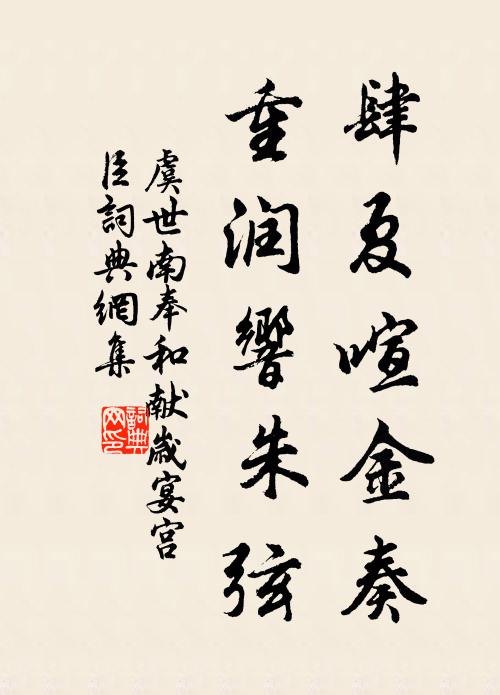 肆夏喧金奏
重润響朱弦
虞世南奉和献歲宴宫
臣詞典網集
詞典網印